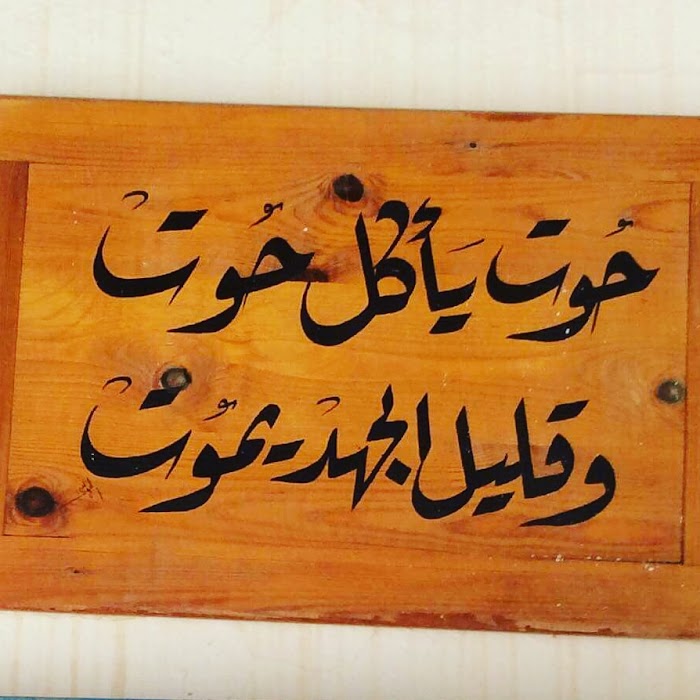 حُوت يَأكل حُوتْ
وقليل الجهدْ يمُوتْ